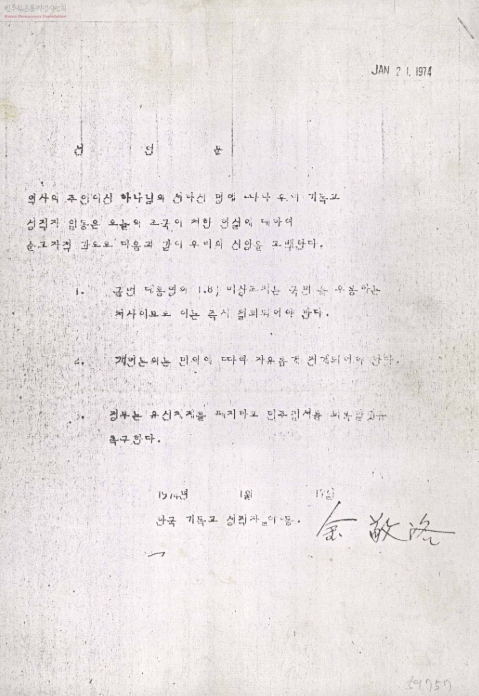 JAN 21. 1974
선 언 문
역사의 주인이신 하나님의 선하신 명에 따라 우리 기독교
성직자 일동은 오늘의 조국이 처한 현실에 대하여
순교자적 각오로 다음과 같이 우리의 신앙을 고백한다.
1. 금번 대통령의 1.8, 비상조치는 국민을 우롱하는
처사이므로 이는 즉시 철회되어야 한다.
2. 개헌논의는 민의에 따라 자유롭게 전개되어야 한다.
정부는 유신체제를 폐지하고 민주질서를 회복할것을
촉구한다.
1974년 1월
한국 기독교 성직자 일동.
金敬洛
59757